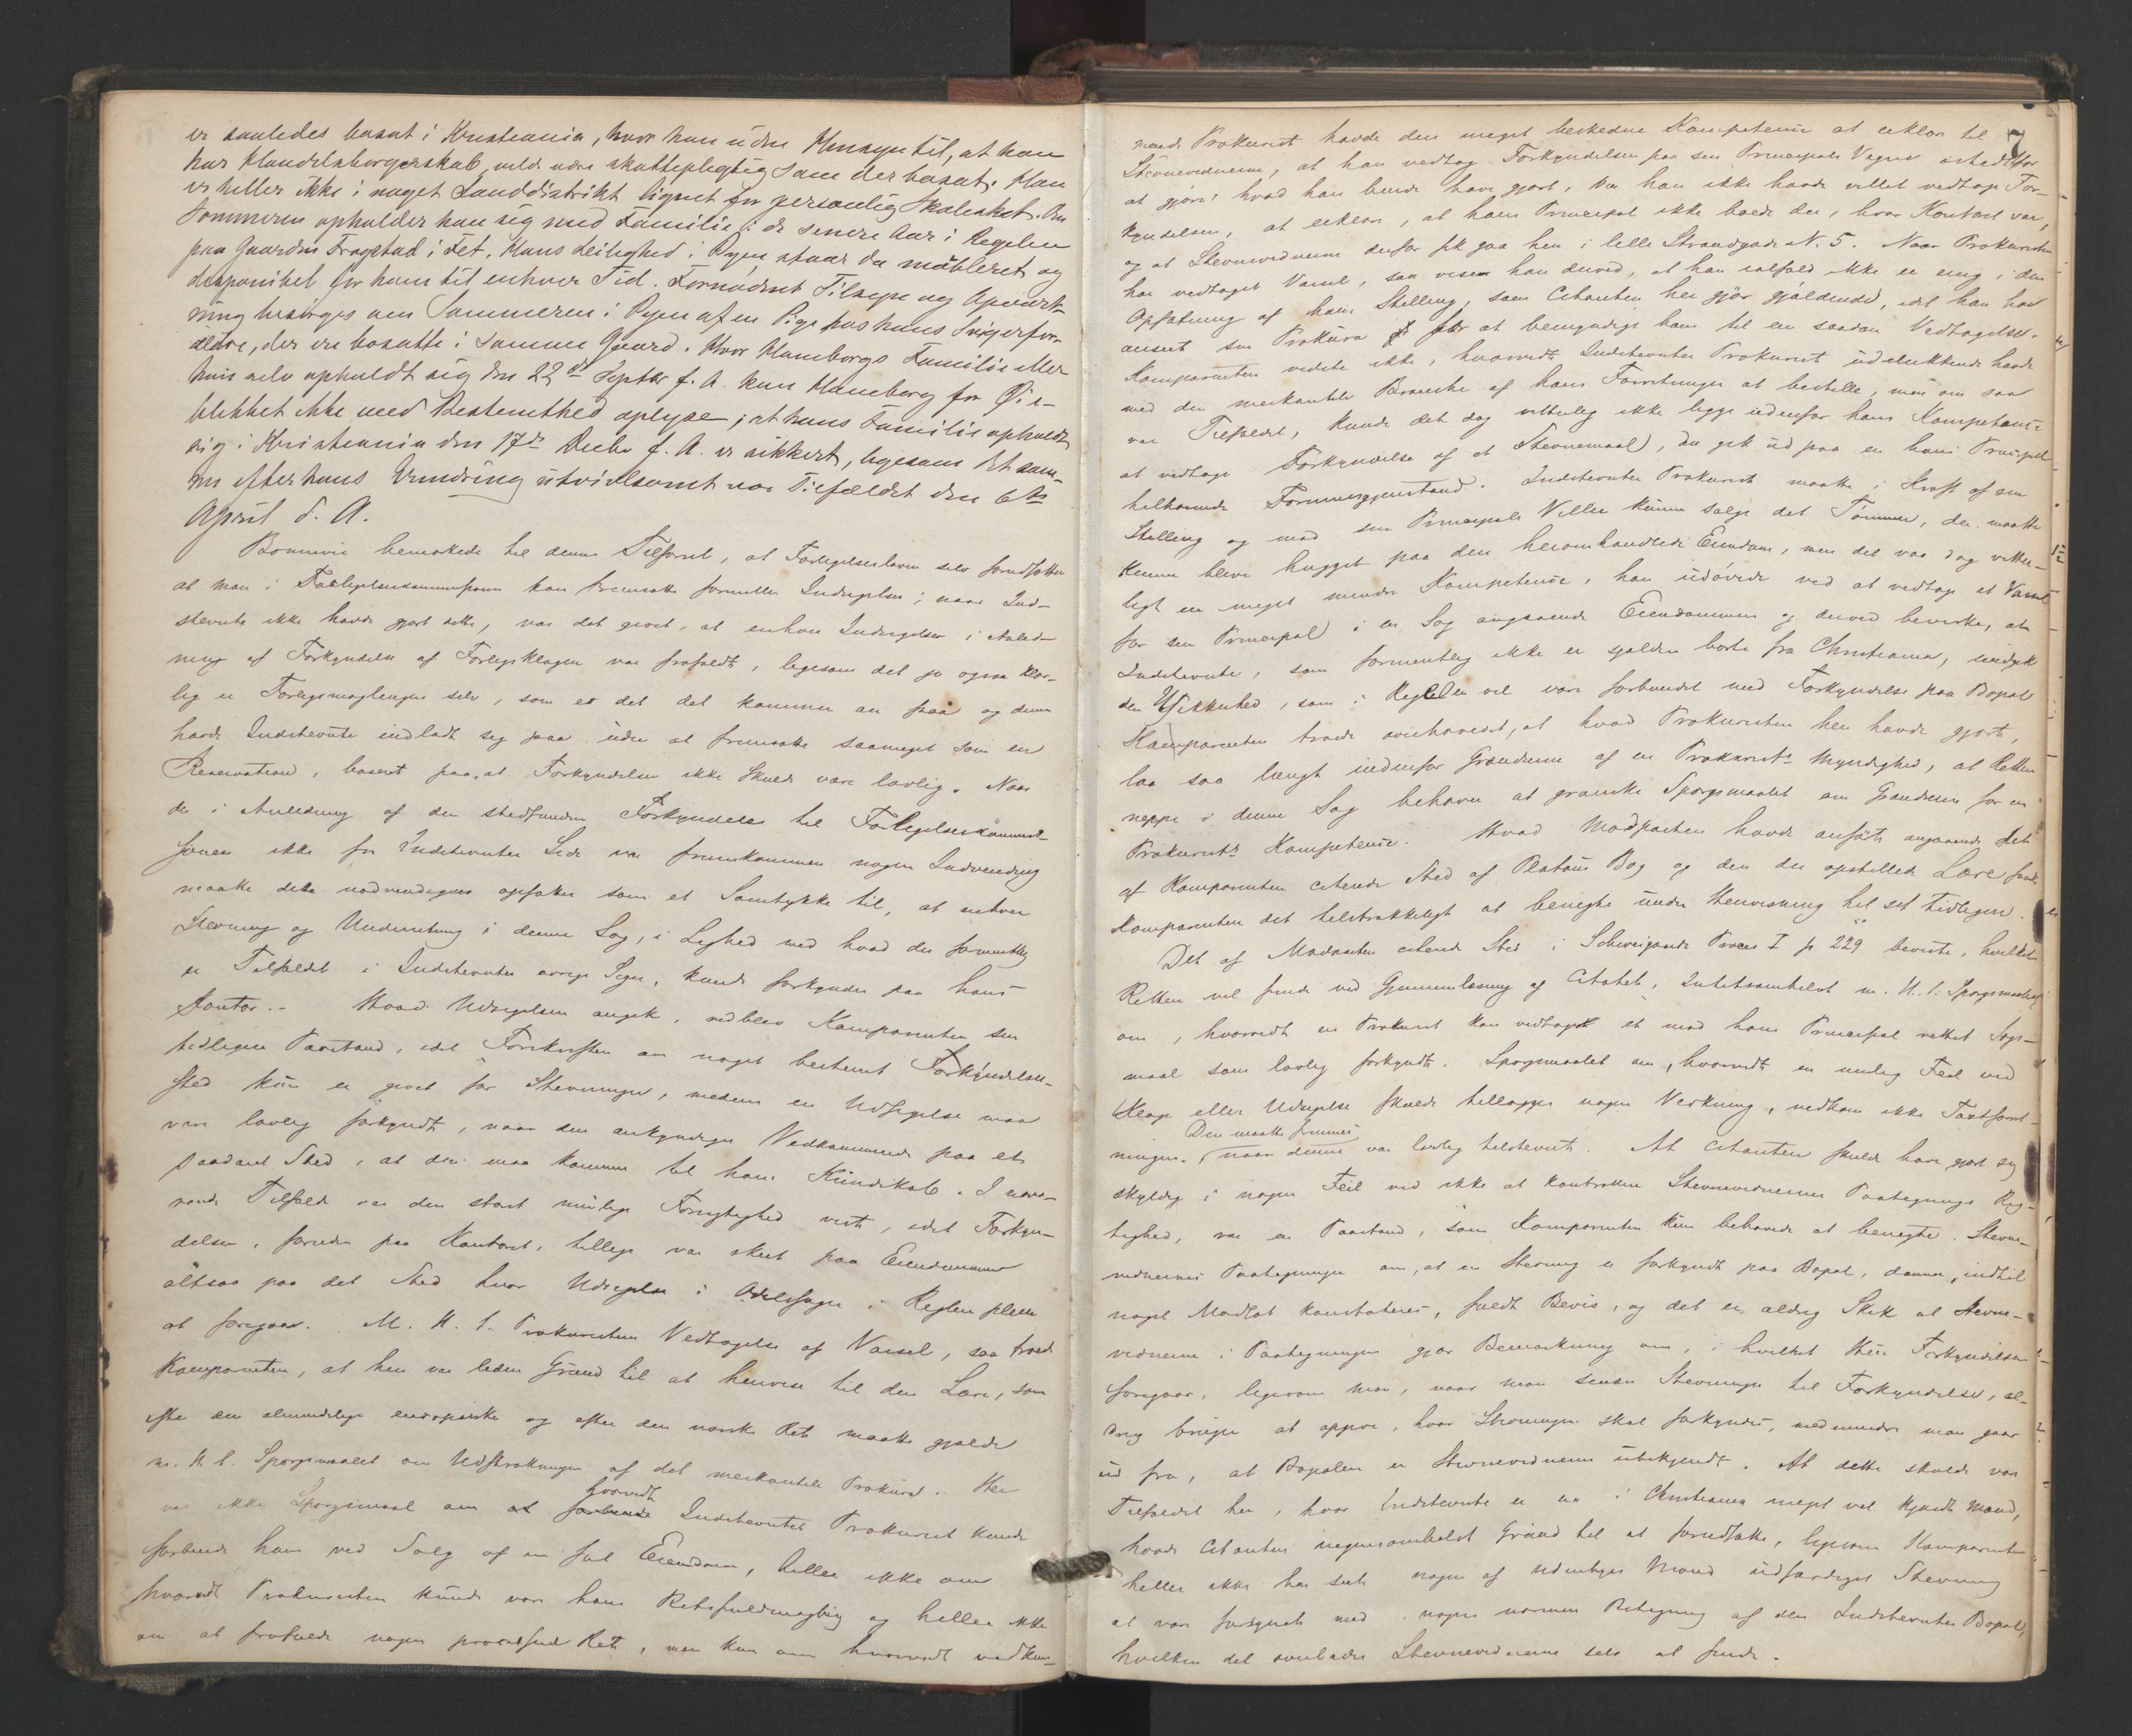 er saaledes bosat i Kristiania, hvor han uden Hensyn til, at han
har Handelsborgerskab vilde være skattepligtig som der bosat. Han
er heller ikke i noget Landdistrikt lignet for personlig Skatskat. Om
Sommeren opholder han sig med Familie i de senere Aar i Regelen
paa Gaarden Frogstad i Fet. Hans Leilighed i Byen staar da møbleret og
disponibel for ham til enhver Tid. Fornødent Tilsyn og Opvart-
ning besørges om Sommeren i Byen af en Pige hos hans Svigerfor-
ældre, der ere bosatte i samme Gaard. Hvor Hambergs Familie eller
han selv opholdt sig den 22de Septbr f. A. kan Hamberg for Øie-
blikket ikke med Bestemthed oplyse; at hans Familie opholdt
sig i Kristiania den 17de Decbr f. A. er sikkert, ligesom det sam-
me efter hans Formening utvivlsomt var Tilfældet den 6te
April d. A.
Bonnevie bemærkede til denne Tilførsel, at Forligelsesloven selv forudsætter
at man i Forligelseskommissionen kan fremsætte formelle Indsigelser; naar Ind-
stevnte ikke havde gjort dette, var det givet, at enhver Indsigelse i Anled-
ning af Forkyndelse af Forligsklagen var frafaldt, ligesom det jo ogsaa klar-
lig er Forligsmæglingen selv, som er det det kommer an paa og denne
havde Indstevnte indladt sig paa uden at fremsætte saameget som en
Reservation, baseret paa, at Forkyndelsen ikke skulde være lovlig. Naar
der i Anledning af den stedfundne Forkyndelse til Forligelseskommis-
sionen ikke fra Indstevntes Side var fremkommen nogen Indvending
maatte dette nødvendigvis opfattes som et Samtykke til, at enhver
Stevning og Underretning i denne Sag, i Lighed med hvad der formentlig
er Tilfældet i Indstevntes øvrige Sager, kunde forkyndes paa hans
Kontor. - Hvad Udsigelsen angik, vedblev Komparenten sin
tidligere Paastand, idet Forskriften om noget bestemt Forkyndelses-
sted kun er givet for Stevninger, medens en Udsigelse maa
være lovlig forkyndt, naar den ankyndiges Vedkommende paa et
saadant Sted, at den maa komme til hans Kundskab. I nærvæ-
rende Tilfælde var den størst mulige Forsigtighed vist, idet Forkyn-
delsen, foruden paa Kontoret, tillige var skeet paa Eiendommen
altsaa paa det Sted hvor Udsigelse i Odelssager i Reglen pleier
at foregaa. M. H. t. Prokuristens Vedtagelse af Varsel, saa troede
Komparenten, at her var liden Grund til at henvise til den Lære, som
efter den almindelige europæiske og efter den norske Ret maatte gjælde
m. H. t. Spørgsmaalet om Udstrækningen af det merkantile Prokura. Her
var ikke Spørgsmaal om at hvorvidt Indstevntes Prokurist kunde
forbinde ham ved Salg af en fast Eiendom, heller ikke om
hvorvidt Prokuristen kunde være hans Retsfuldmægtig og heller ikke
om at frafalde nogen processuel Ret, men kun om hvorvidt vedkom-
7
mende Prokurist havde den meget beskedne Kompetence at erklære til
Stevnevidnerne, at han vedtog Forkyndelsen paa sin Principals Vegne istedetfor
at gjøre, hvad han burde have gjort, hvis han ikke havde villet vedtage For-
kyndelsen, at erklære, at hans Principal ikke boede der, hvor Kontoret var,
og at Stevnevidnerne derfor fik gaa hen i lille Strandgade N. 5. Naar Prokuristen
har vedtaget Varsel, saa viser han derved, at han ialfald ikke er enig i den
Opfatning af hans Stilling, som Citanten her gjør gjældende, idet han har
anseet sin Prokura for at bemyndige ham til en saadan Vedtagelse.
Komparenten vidste ikke, hvorvidt Indstevntes Prokurist udelukkende havde
med den merkantile Branche af hans Forretninger at bestille, men om saa
var Tilfældet, kunde det dog vitterlig ikke ligge udenfor hans Kompetence
at vedtage Forkyndelse af et Stevnemaal, der gik ud paa en hans Principal
tilkommende Formuesgjenstand. Indstevntes Prokurist maatte i Kraft af sin
Stilling og mod sin Principals Villie kunne sælge det Tømmer, der maatte
kunne blive hugget paa den heromhandlede Eiendom, men det var dog vitter-
ligt en meget mindre Kompetence, han udøvede ved at vedtage et Varsel
for sin Principal i en Sag angaaende Eiendommen og derved bevirke, at
Indstevnte, som formentlig ikke er sjelden borte fra Christiania, undgik
den Usikkerhed, som i Reglen vil være forbundet med Forkyndelse paa Bopæl
Komparenten troede overhovedet, at hvad Prokuristen her havde gjort,
laa saa langt indenfor Grændserne af en Prokurists Myndighed, at Retten
neppe i denne Sag behøver at granske Spørgsmaalet om Grændsen for en
Prokurists Kompetence. Hvad Modparten havde anført angaaende det
af Komparenten citerede Sted af Platous Bog og den der opstillede Lære fandt
Komparenten det tilstrækkeligt at benegte under Henvisning til sit tidligere.
Det af Modparten citerede Sted i Schweigaards Proces I p 229 beviste, hvilket
Retten vil finde ved Gjennemlæsning af Citatet, Intetsomhelst m. H. t. Spørgsmaalet
om, hvorvidt en Prokurist kan vedtage et mod hans Principal rettet Søgs-
maal som lovlig forkyndt. Spørgsmaalet om, hvorvidt en mulig Feil ved
Klage eller Udsigelse skulde tillægges nogen Virkning, vedkom ikke Taxtforret-
ningen. Den maatte fremmes naar denne var lovlig tilstevnt. At Citanten skulde have gjort sig
skyldig i nogen Feil ved ikke at kontrollere Stevnevidnernes Paategnings Rig-
tighed, var en Paastand, som Komparenten kun behøvede at benegte. Stevne-
vidnernes Paategninger om, at en Stevning er forkyndt paa Bopæl, danner, indtil
noget Modsat konstateres, fuldt Bevis, og det er aldrig Skik at Stevne-
vidnerne i Paategningen gjør Bemærkning om, i hvilket Hus Forkyndelsen
foregaar, ligesom man, naar man sender Stevninger til Forkyndelse, al-
drig bruger at opgive, hvor Stevningen skal forkyndes, medmindre man gaar
ud fra, at Bopælen er Stevnevidnerne ubekjendt. At dette skulde være
Tilfældet her, hvor Indstevnte er en i Christiania meget vel kjendt Mand,
havde Citanten ingensomhelst Grund til at forudsætte, ligesom Komparenten
heller ikke har seet nogen af udenbyes Mand udfærdiget Stevning
at være forsynet med nogen nærmere Betegning af den Indstevntes Bopæl,
hvilken det overlades Stevnevidnerne selv at finde.